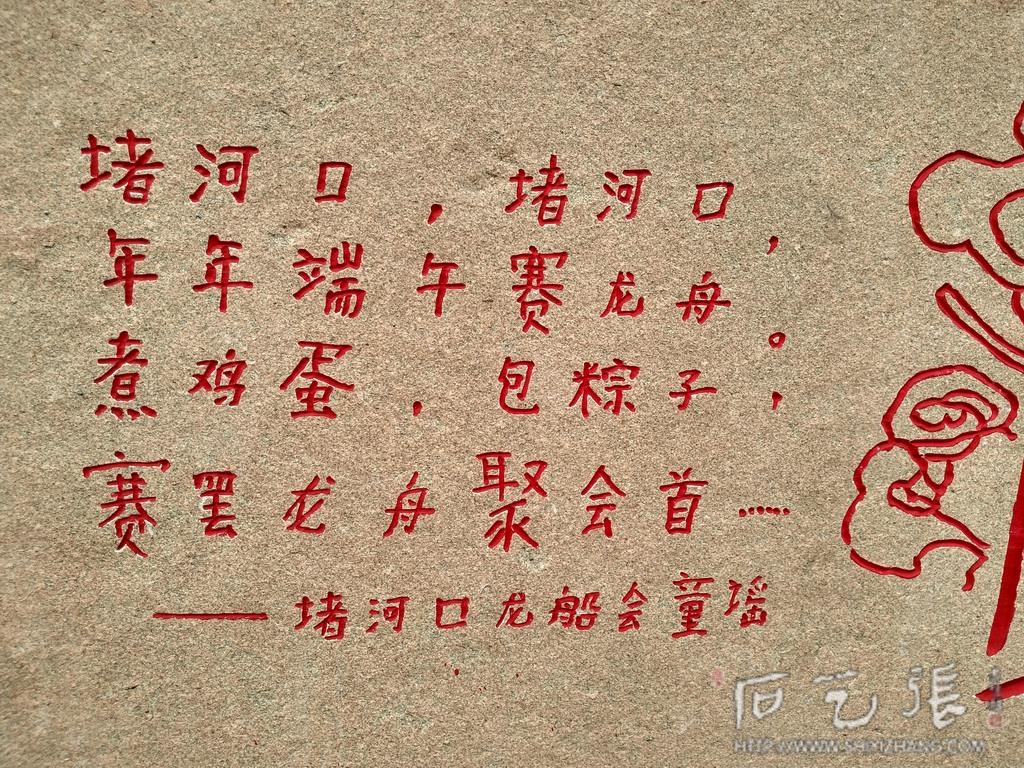 堵河口，堵河口，
年年端午赛龙舟。
煮鸡蛋，包粽子，
赛罢龙舟聚会首……
——堵河口龙船会童瑶
石艺張
HTTP://WWW.SHIYIZHANG.COM